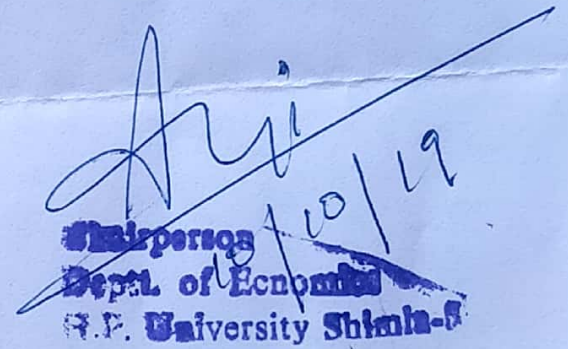 10/10/19
Chairperson
Deptt. of Ecnomics
H.P. University Shimla-5